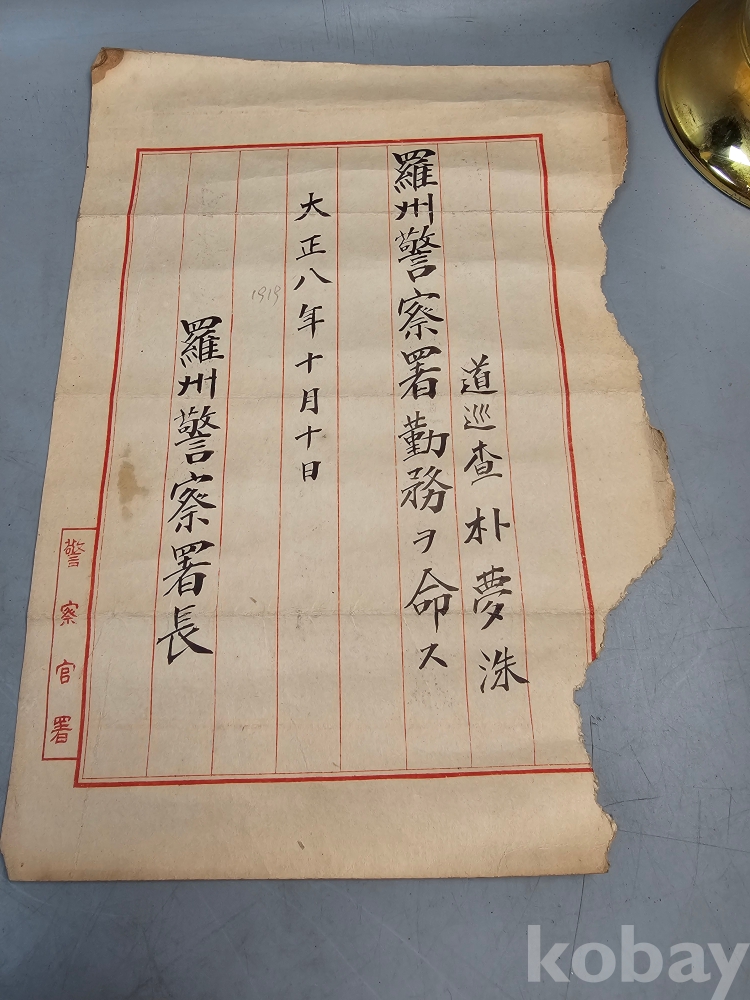 道巡査 朴夢洙
羅州警察署勤務ヲ命ス
大正八年十月十日
1919
羅州警察署長
警察官署
kobay